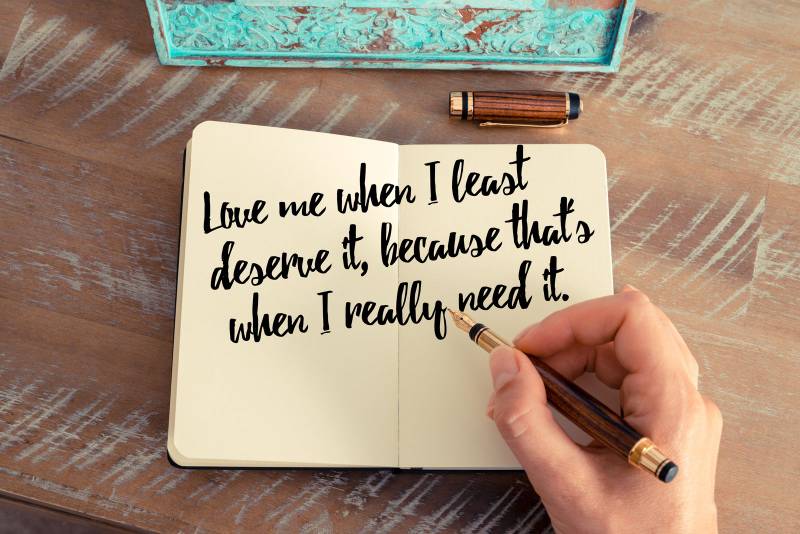 Love me when I least
deserve it, because that's
when I really need it.